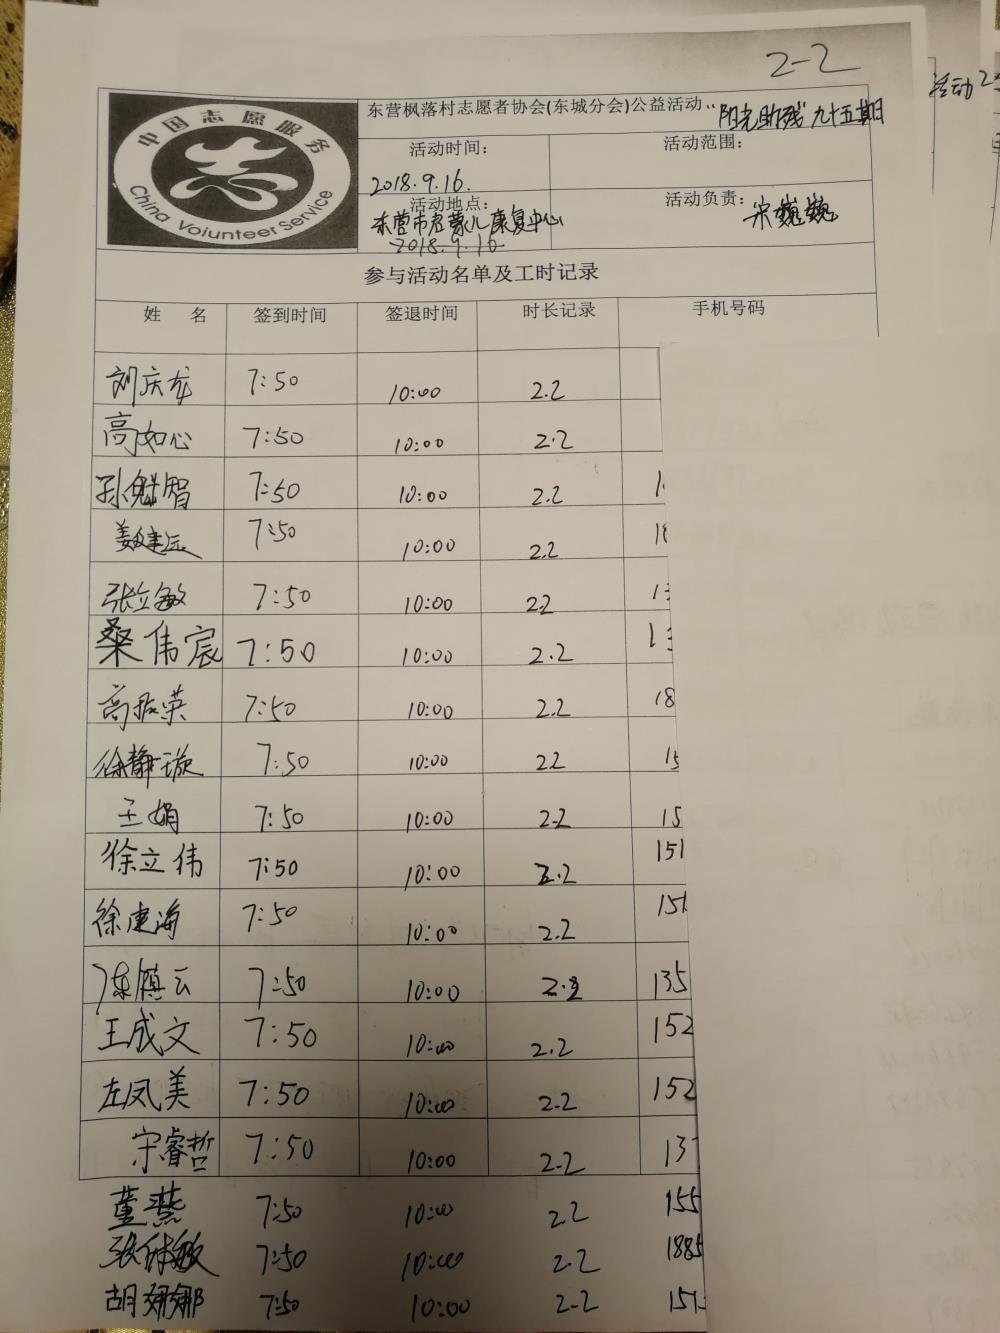 2-2
活动2
中国志愿服务
China Voiunteer Service
东营枫落村志愿者协会(东城分会)公益活动 "阳光助残" 九十五期日
活动时间: 活动范围:
2018.9.16.
活动地点: 活动负责: 宋巍巍
东营市启蒙儿康复中心
2018.9.16
参与活动名单及工时记录
姓 名 签到时间 签退时间 时长记录 手机号码
刘庆龙 7:50 10:00 2.2
高如心 7:50 10:00 2.2
孙魁智 7:50 10:00 2.2 1
姜建远 7:50 10:00 2.2 18
张立敏 7:50 10:00 2.2 13
桑伟宸 7:50 10:00 2.2 13
高振英 7:50 10:00 2.2 18
徐静璇 7:50 10:00 2.2 15
王娟 7:50 10:00 2.2 15
徐立伟 7:50 10:00 2.2 151
徐建海 7:50 10:00 2.2 151
陈慎云 7:50 10:00 2.2 135
王成文 7:50 10:00 2.2 152
左凤美 7:50 10:00 2.2 152
宋睿哲 7:50 10:00 2.2 137
董燕 7:50 10:00 2.2 155
张继敏 7:50 10:00 2.2 1885
胡娜娜 7:50 10:00 2.2 151